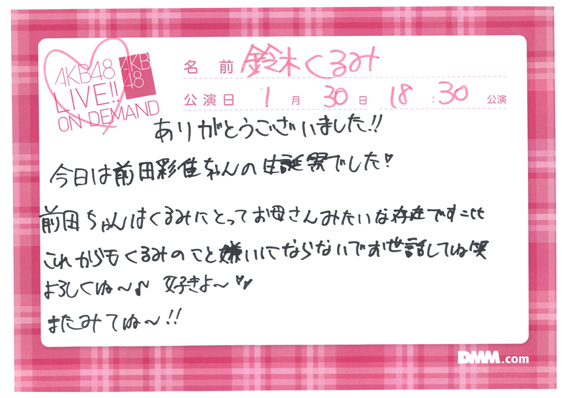 AKB48
LIVE!!
ON DEMAND
AKB
48
名 前 鈴木くるみ
公演日 1 月 30 日 18 : 30 公演
ありがとうございました!!
今日は前田彩佳ちゃんの生誕祭でした♡
前田ちゃんはくるみにとってお母さんみたいな存在です
これからもくるみのこと嫌いにならないでお世話してね笑
よろしくね〜♪ 好きよ〜♡
またみてね〜!!
DMM.com